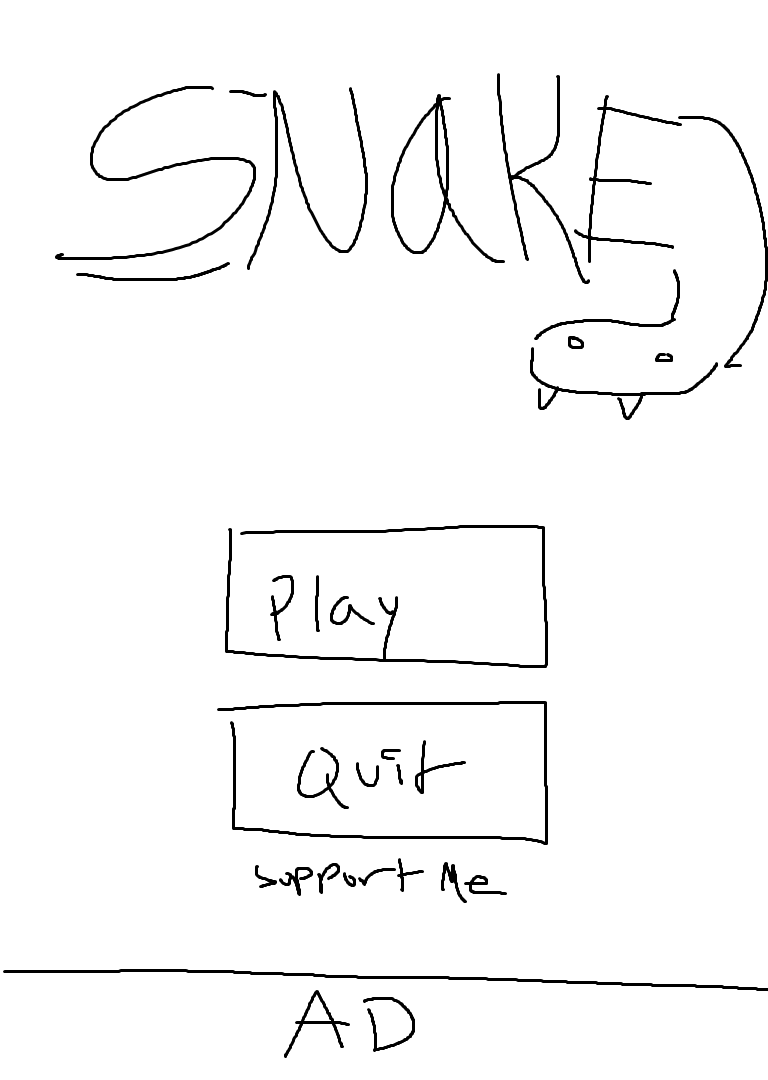 SNaKE
Play
Quit
support Me
AD